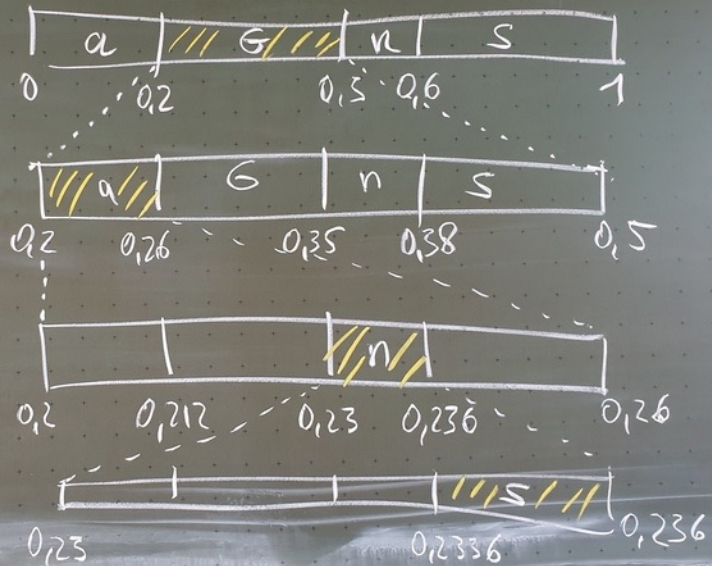 a G n S
0 0,2 0,5 0,6 1
a G n S
0,2 0,26 0,35 0,38 0,5
n
0,2 0,212 0,23 0,236 0,26
S
0,23 0,2336 0,236